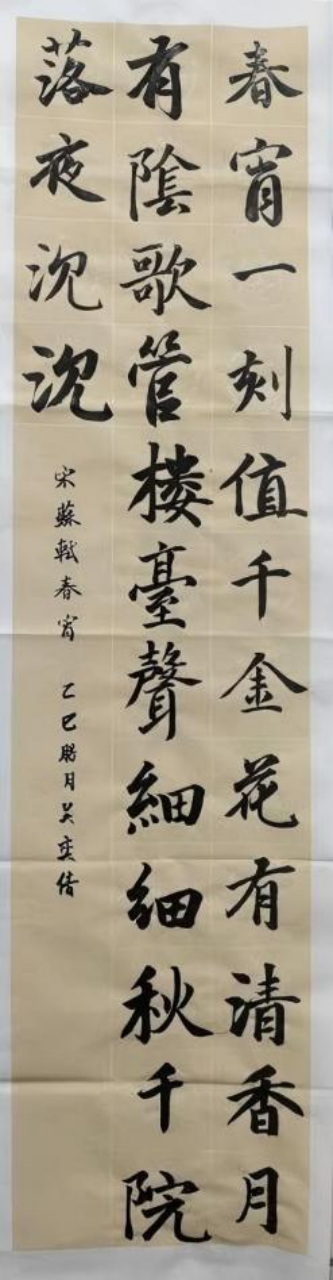 春宵一刻值千金花有清香月
有陰歌管楼臺聲細細秋千院
落夜沉沉
宋蘇軾春宵 乙巳腊月吴奕倩